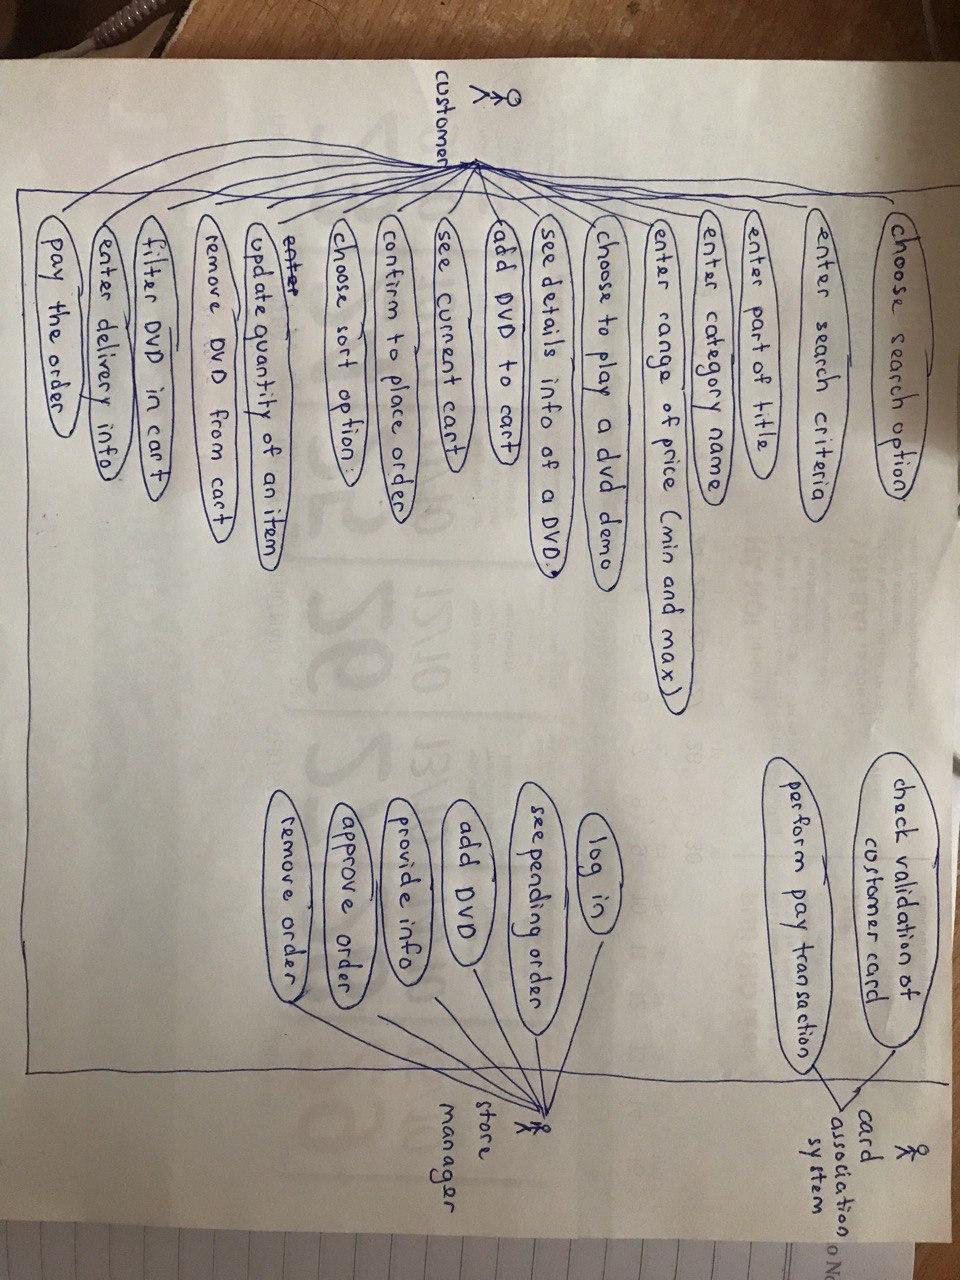 customer
choose search option
enter search criteria
enter part of title
enter category name
enter range of price (min and max)
choose to play a dvd demo
see details info of a DVD.
add DVD to cart
see current cart
confirm to place order
choose sort option:
enter
update quantity of an item
remove DVD from cart
filter DVD in cart
enter delivery info
pay the order
check validation of
customer card
perform pay transaction
card
association
system
log in
see pending order
add DVD
provide info
approve order
remove order
store
manager